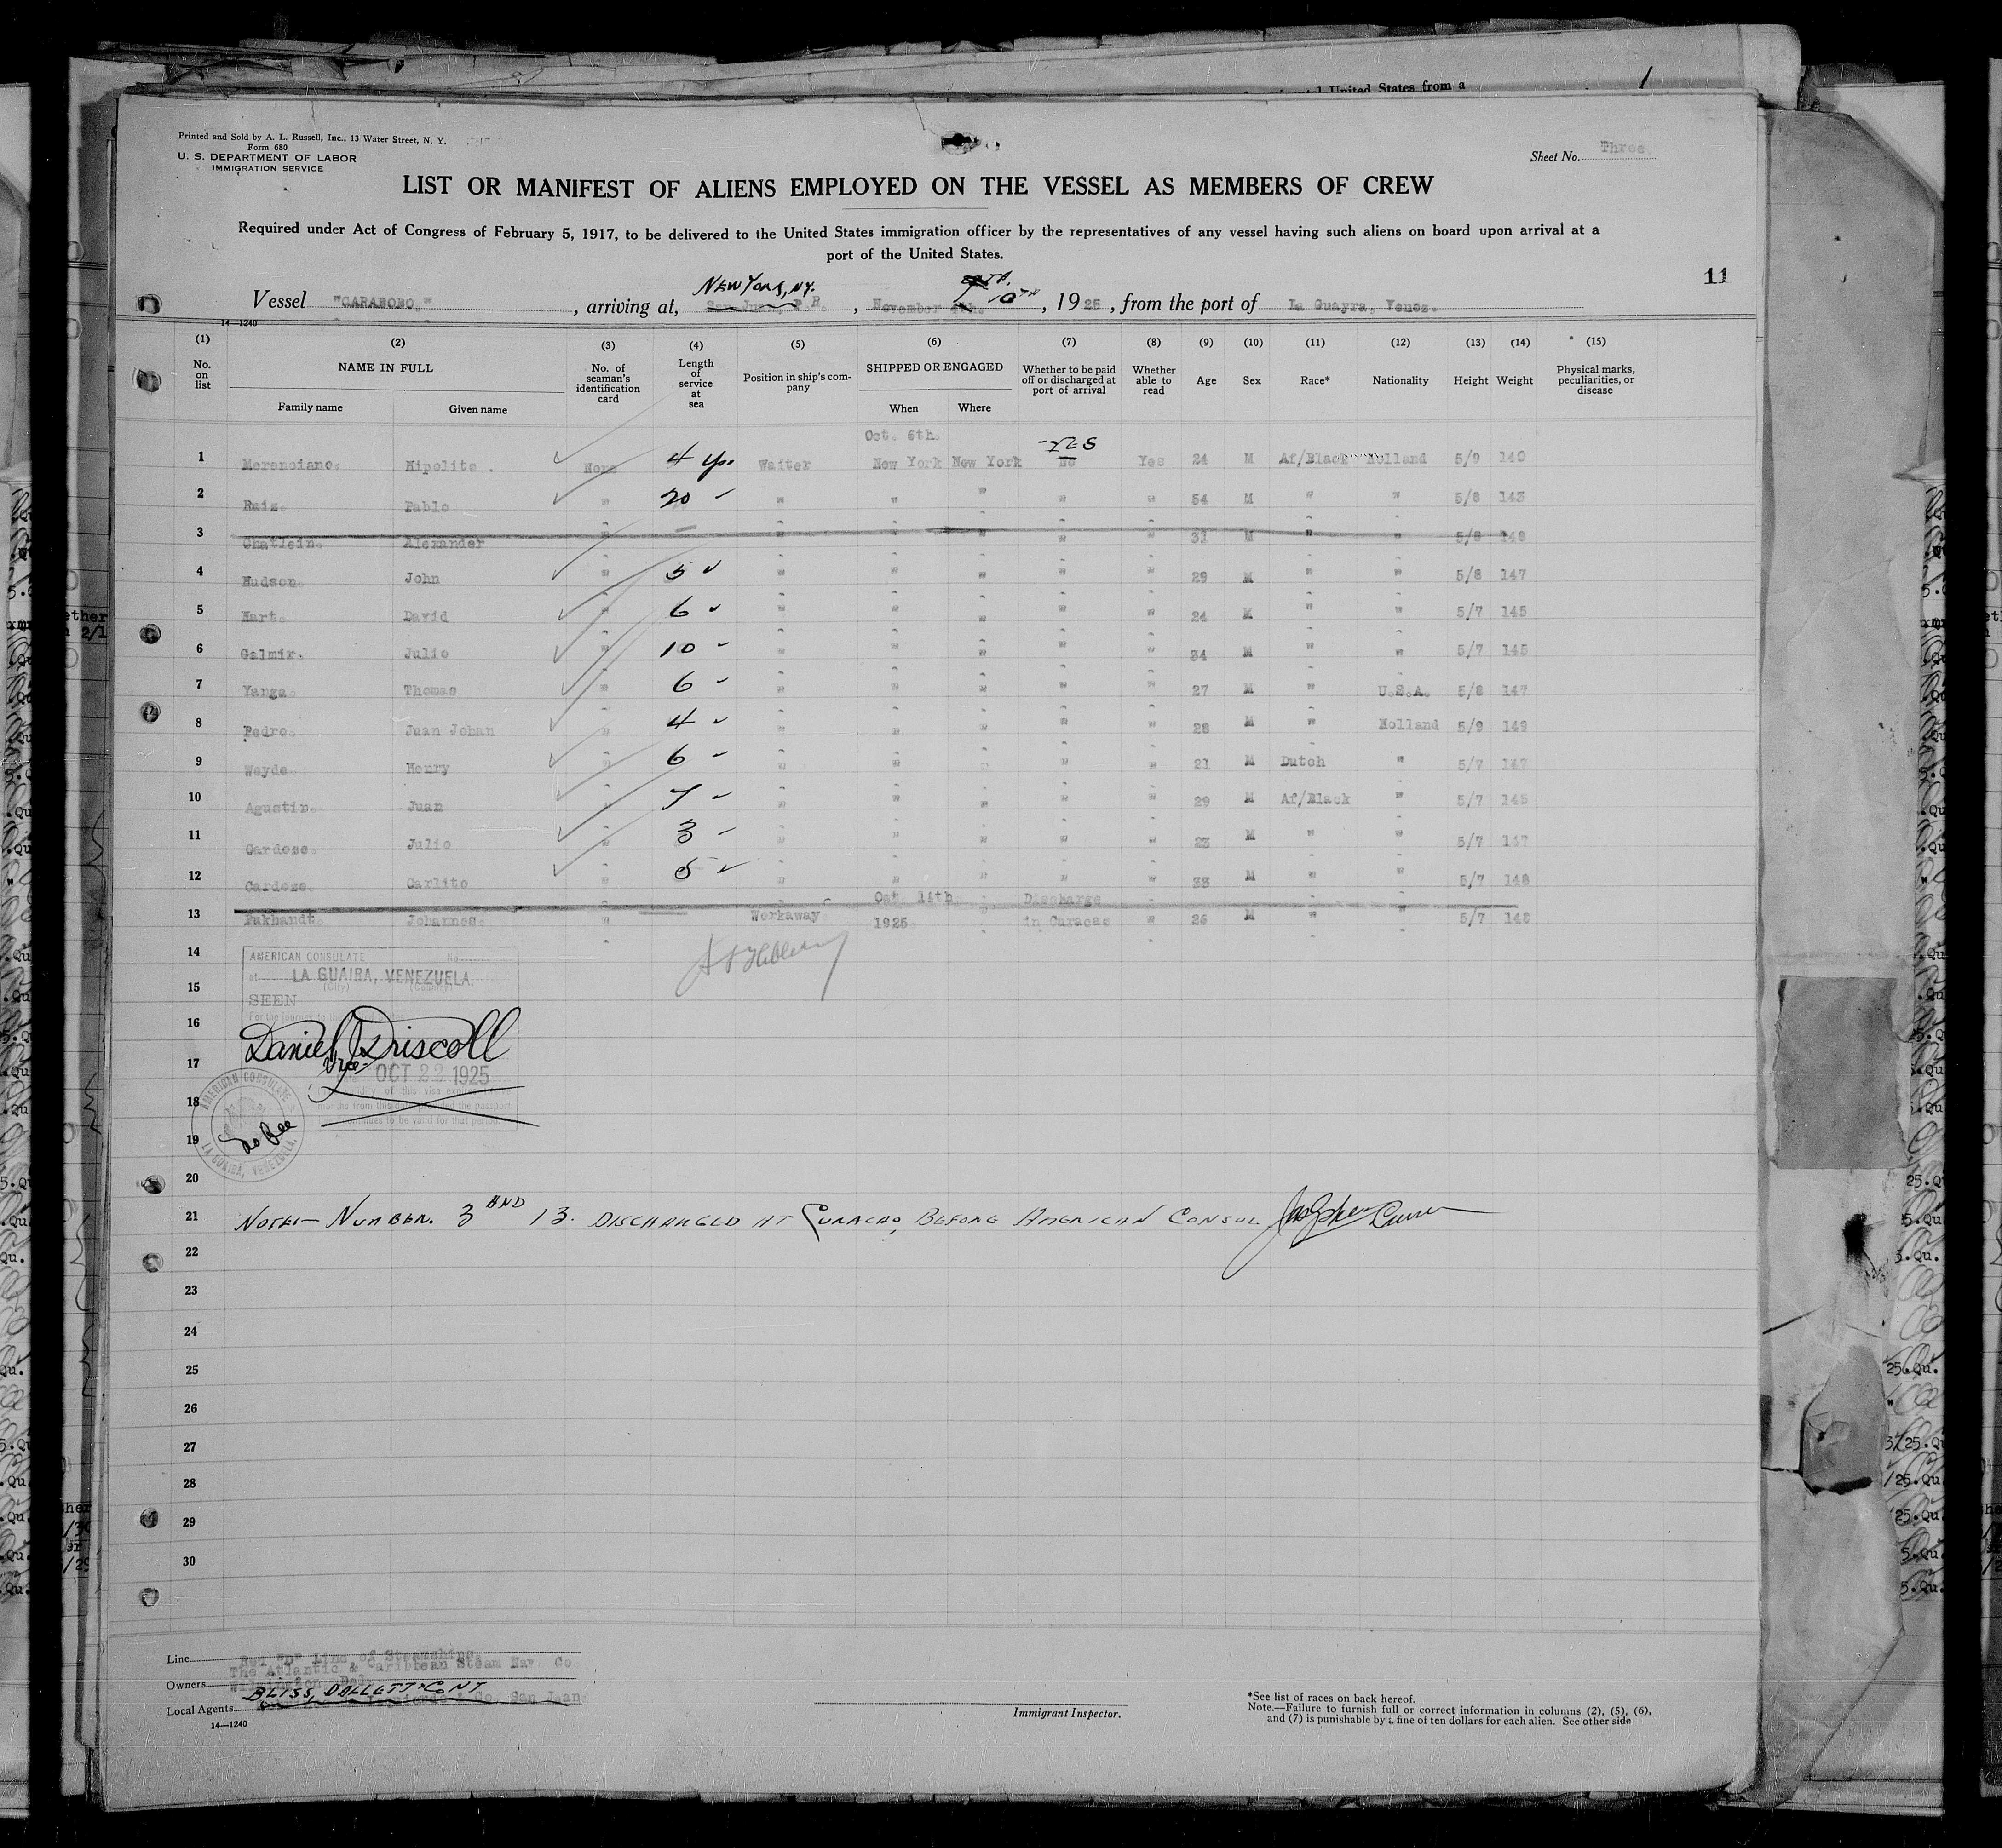 Printed and Sold by A. L. Russell, Inc., 13 Water Street, N. Y.
Form 680
U. S. DEPARTMENT OF LABOR
IMMIGRATION SERVICE
Sheet No. Three
LIST OR MANIFEST OF ALIENS EMPLOYED ON THE VESSEL AS MEMBERS OF CREW
Required under Act of Congress of February 5, 1917, to be delivered to the United States immigration officer by the representatives of any vessel having such aliens on board upon arrival at a
port of the United States.
11
NEW YORK, NY.
Vessel "CARABOBO," , arriving at, San Juan, P.R. , November 10TH , 1925 , from the port of La Guayra, Venez.
14—1240
(1) (2) (3) (4) (5) (6) (7) (8) (9) (10) (11) (12) (13) (14) (15)
No. on list NAME IN FULL No. of seaman's identification card Length of service at sea Position in ship's company SHIPPED OR ENGAGED Whether to be paid off or discharged at port of arrival Whether able to read Age Sex Race* Nationality Height Weight Physical marks, peculiarities, or disease
Family name Given name When Where
Oct. 6th. YES
1 Hipolito. None 4 yrs Waiter New York New York No Yes 24 M Af/Black Holland 5/9 140
2 Ruiz. Pablo " 20 " " " " " 54 M " " 5/8 143
3 Chatlein. Alexander " " " " " " 31 M " " 5/8 148
4 Hudson. John " 5 " " " " " 29 M " " 5/8 147
5 Hart. David " 6 " " " " " 24 M " " 5/7 145
6 Galmir. Julio " 10 " " " " " 34 M " " 5/7 145
7 Yanga. Thomas " 6 " " " " " 27 M " U.S.A. 5/8 147
8 Pedro. Juan Johan " 4 " " " " " 28 M " Holland 5/9 149
9 Weyde. Henry " 6 " " " " " 21 M Dutch " 5/7 147
10 Agustin. Juan " 7 " " " " " 29 M Af/Black " 5/7 145
11 Cardoze. Julio " 3 " " " " " 23 M " " 5/7 147
12 Cardoze. Carlito " 5 " " " " " 33 M " " 5/7 148
Oct. 14th. Discharge
13 Johannes. " Workaway 1925 " in Curacao " 26 M " " 5/7 148
14
AMERICAN CONSULATE No.
15
at LA GUAIRA, VENEZUELA.
(City) (Country)
SEEN
16
For the journey to the
Daniel J Driscoll
17
Vice
OCT 22 1925
of this visa
18
months from this date the passport
continues to be valid for that period.
AMERICAN CONSULATE
LA GUAIRA, VENEZUELA.
No Fee
19
20
21 NOTE:- NUMBER. 3 AND 13. DISCHARGED AT CURACAO, BEFORE AMERICAN CONSUL
22
23
24
25
26
27
28
29
30
Line Red "D" Line of Steamships.
The Atlantic & Caribbean Steam Nav. Co
Owners Wilmington Del.
BLISS, DALLETT & CO NY
Local Agents & Co. San Juan
14—1240
Immigrant Inspector.
*See list of races on back hereof.
Note.—Failure to furnish full or correct information in columns (2), (5), (6),
and (7) is punishable by a fine of ten dollars for each alien. See other side
United States from a